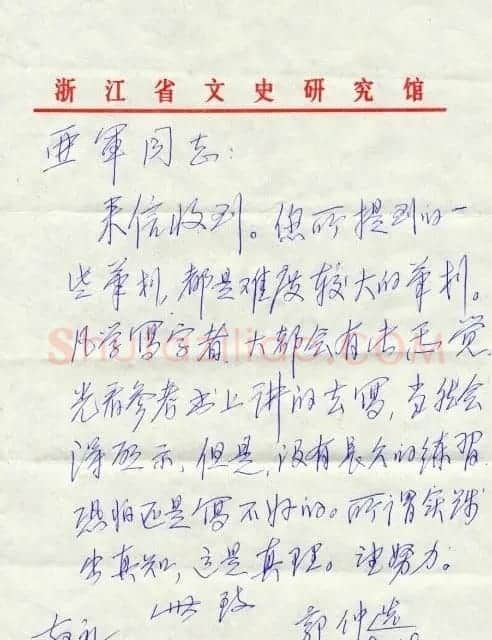 浙江省文史研究馆
亚軍同志:
来信收到。您所提到的一
些笔划,都是难度较大的笔划。
凡学写字者,大都会有此感觉
光看参考书上讲的去写,当然会
得启示,但是,没有长久的练习
恐怕还是写不好的。所谓实践
出真知,这是真理。望努力。
此致
郭仲选